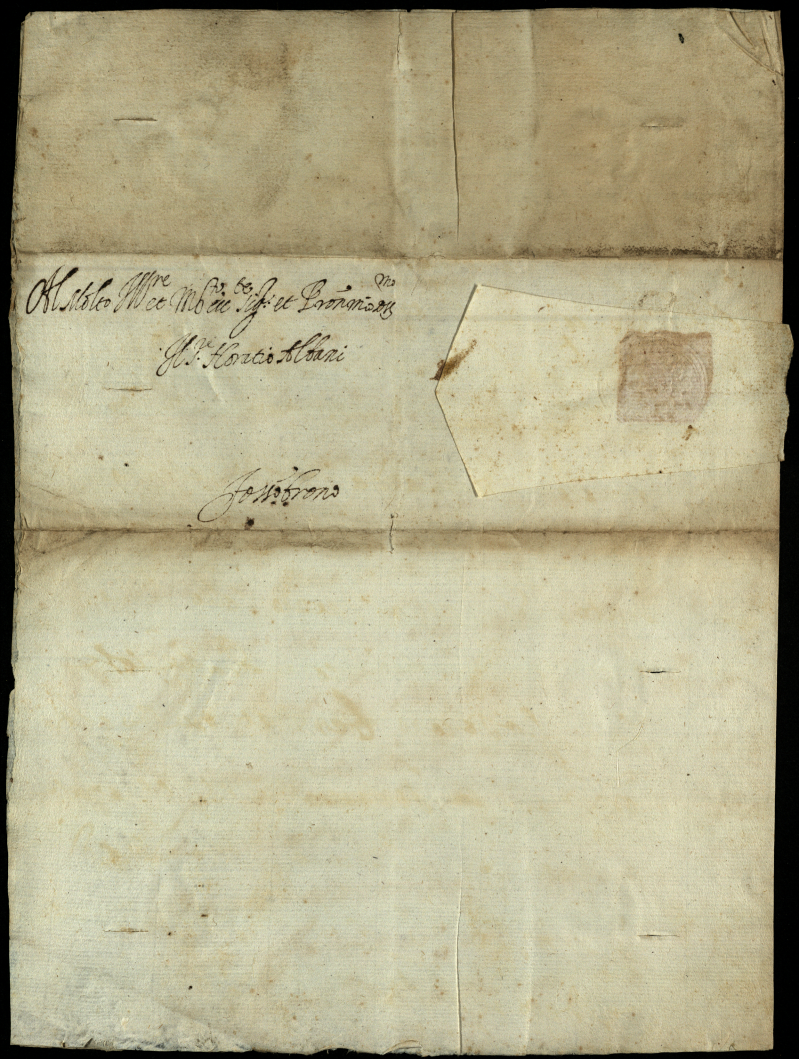 Al Molto Ill^re et M^to ecc^te Sig^r et Pron̄ mio oss^mo
Il S^r Horatio Albani
Fossombrone